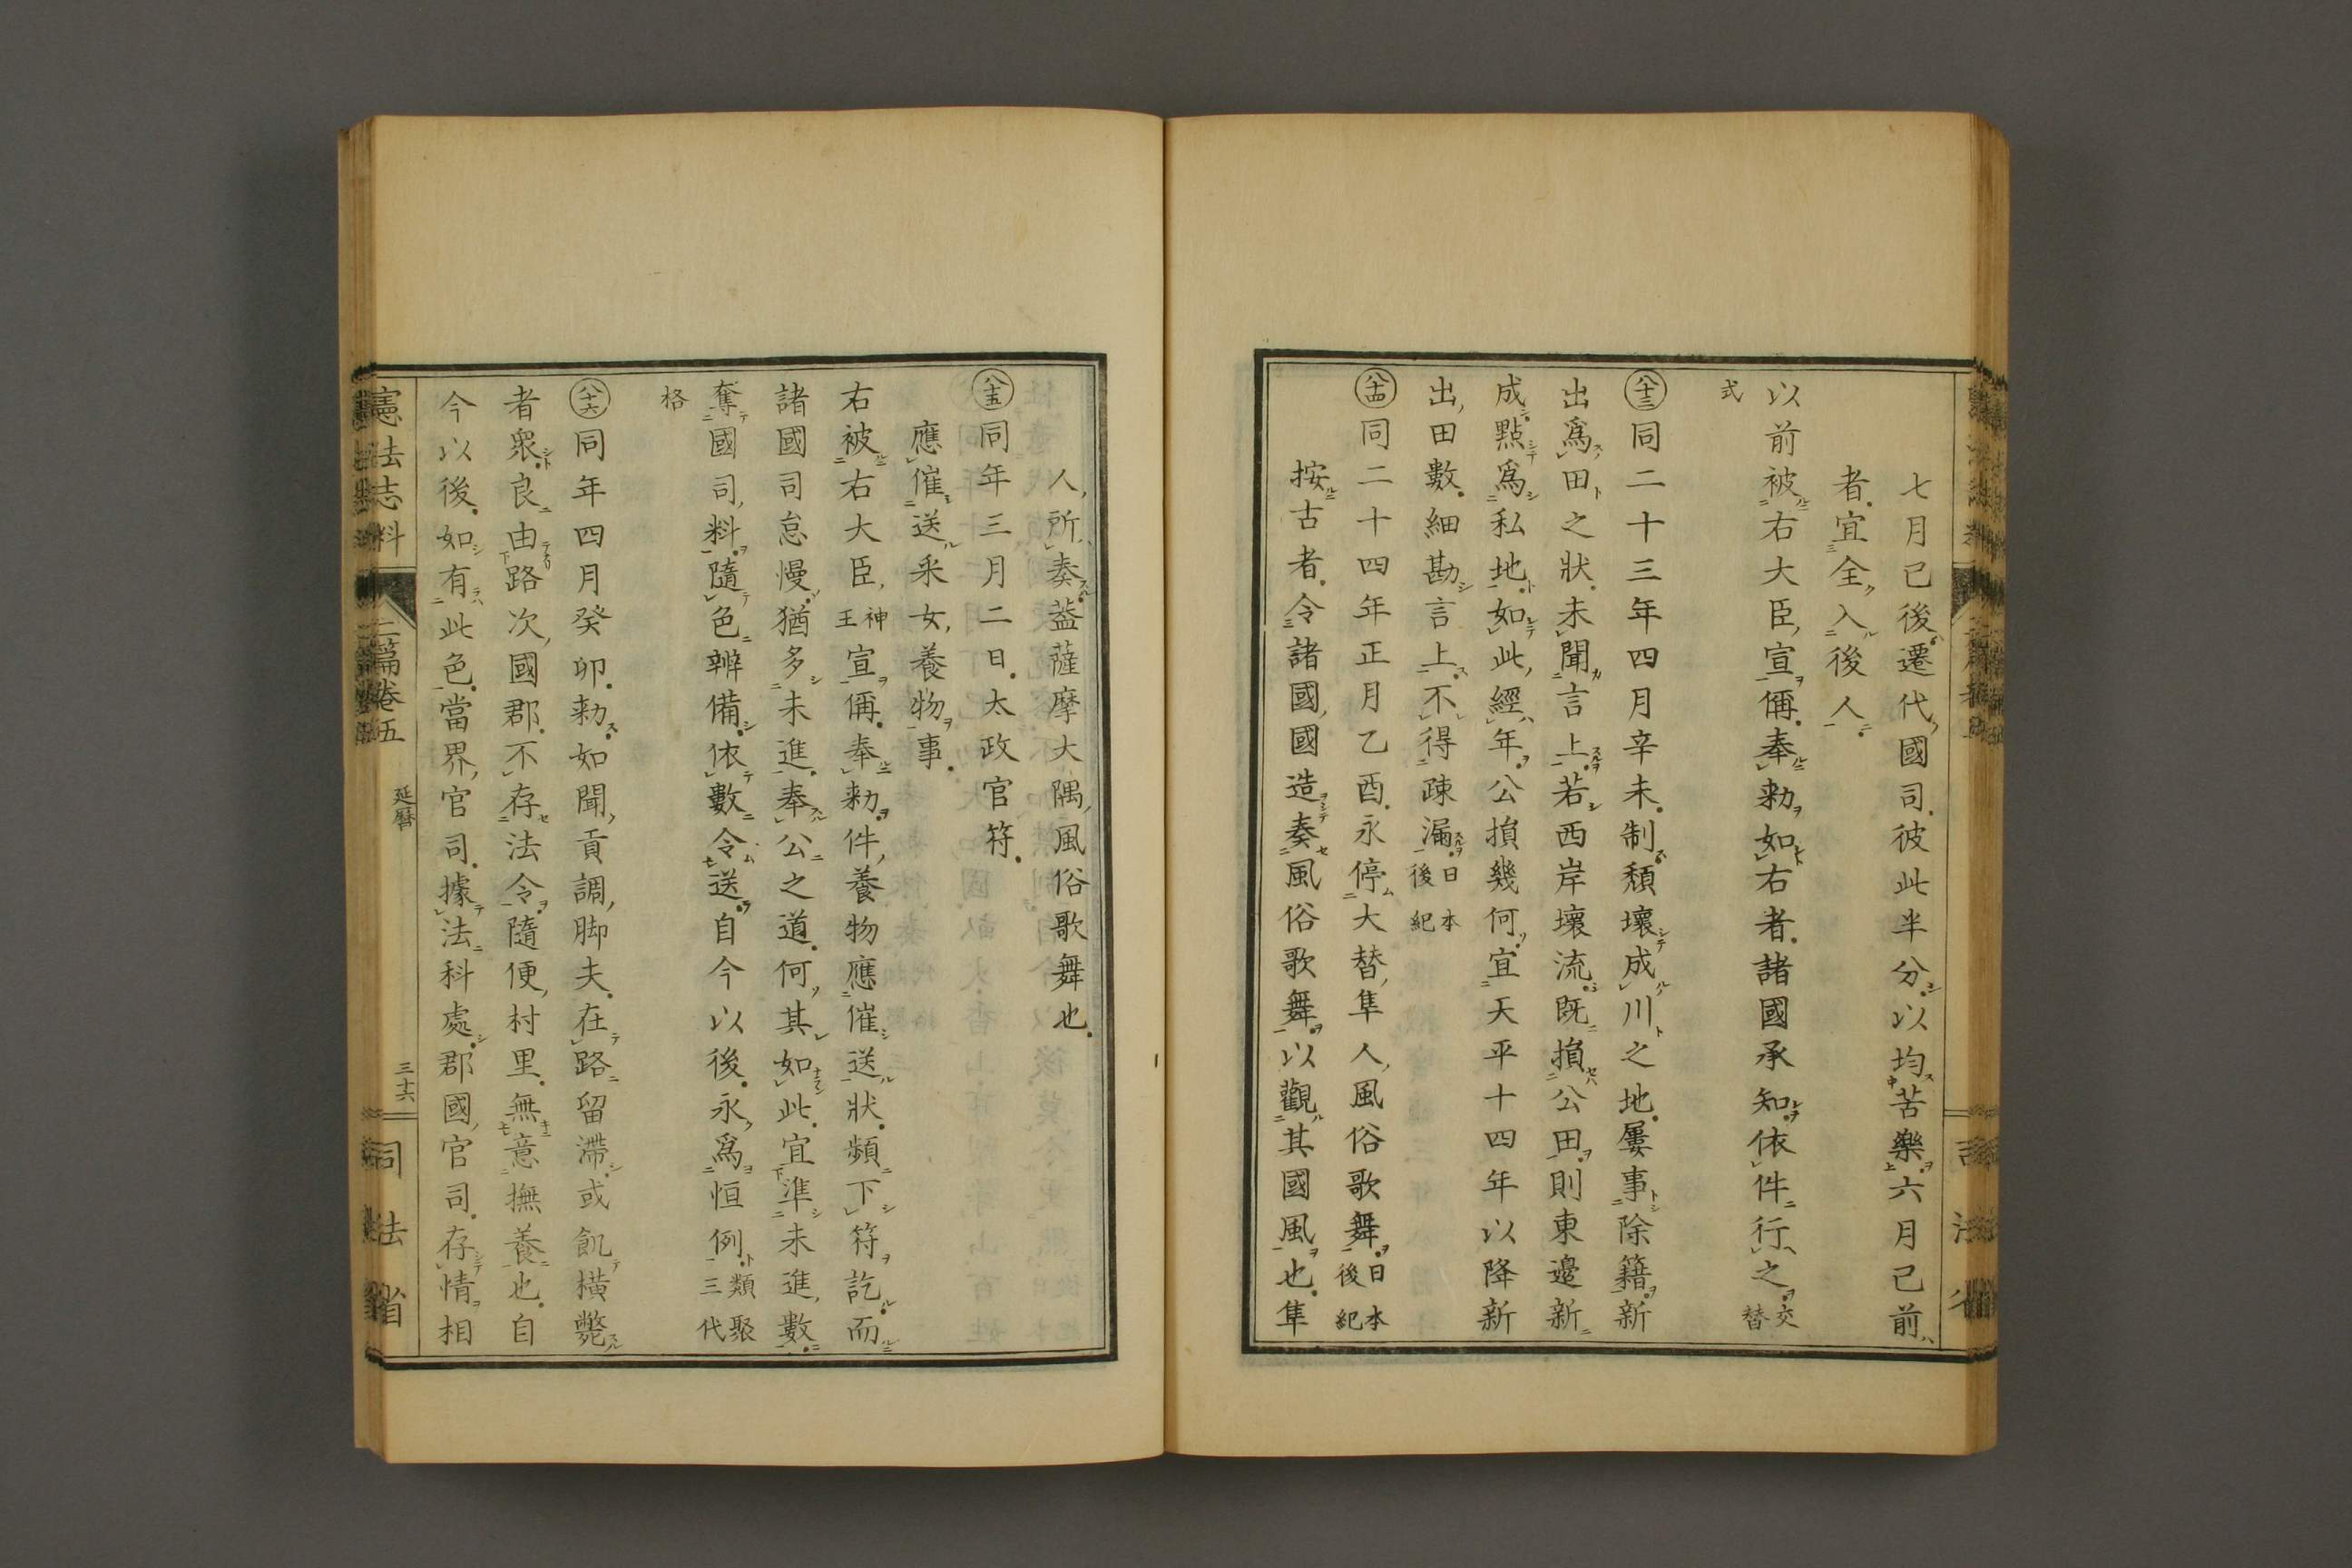 七月已後遷代國司彼此半分以均苦樂六月已前
者宜全入後人
以前被右大臣宣偁奉勅如右者諸國承知依件行之交替
式
八十三同二十三年四月辛未制頽壞成川之地屢事除籍新
出爲田之狀未聞言上若西岸壞流既損公田則東邊新
成點爲私地如此經年公損幾何宜天平十四年以降新
出田數細勘言上不得疎漏日本後紀
八十四同二十四年正月乙酉永停大替隼人風俗歌舞日本後紀
按古者令諸國國造奏風俗歌舞以觀其國風也隼
人所奏蓋薩摩大隅風俗歌舞也
八十五同年三月二日太政官符
應催送采女養物事
右被右大臣神王宣偁奉勅件養物應催送狀頻下符訖而
諸國司怠慢猶多未進奉公之道何其如此宜準未進數
奪國司料隨色辨備依數令送自今以後永爲恒例類聚三代
格
八十六同年四月癸卯勅如聞貢調脚夫在路留滯或飢橫斃
者衆良由路次國郡不存法令隨便村里無意撫養也自
今以後如有此色當界官司據法科處郡國官司存情相
憲法志料 二篇卷五 延曆 三十六 司法省